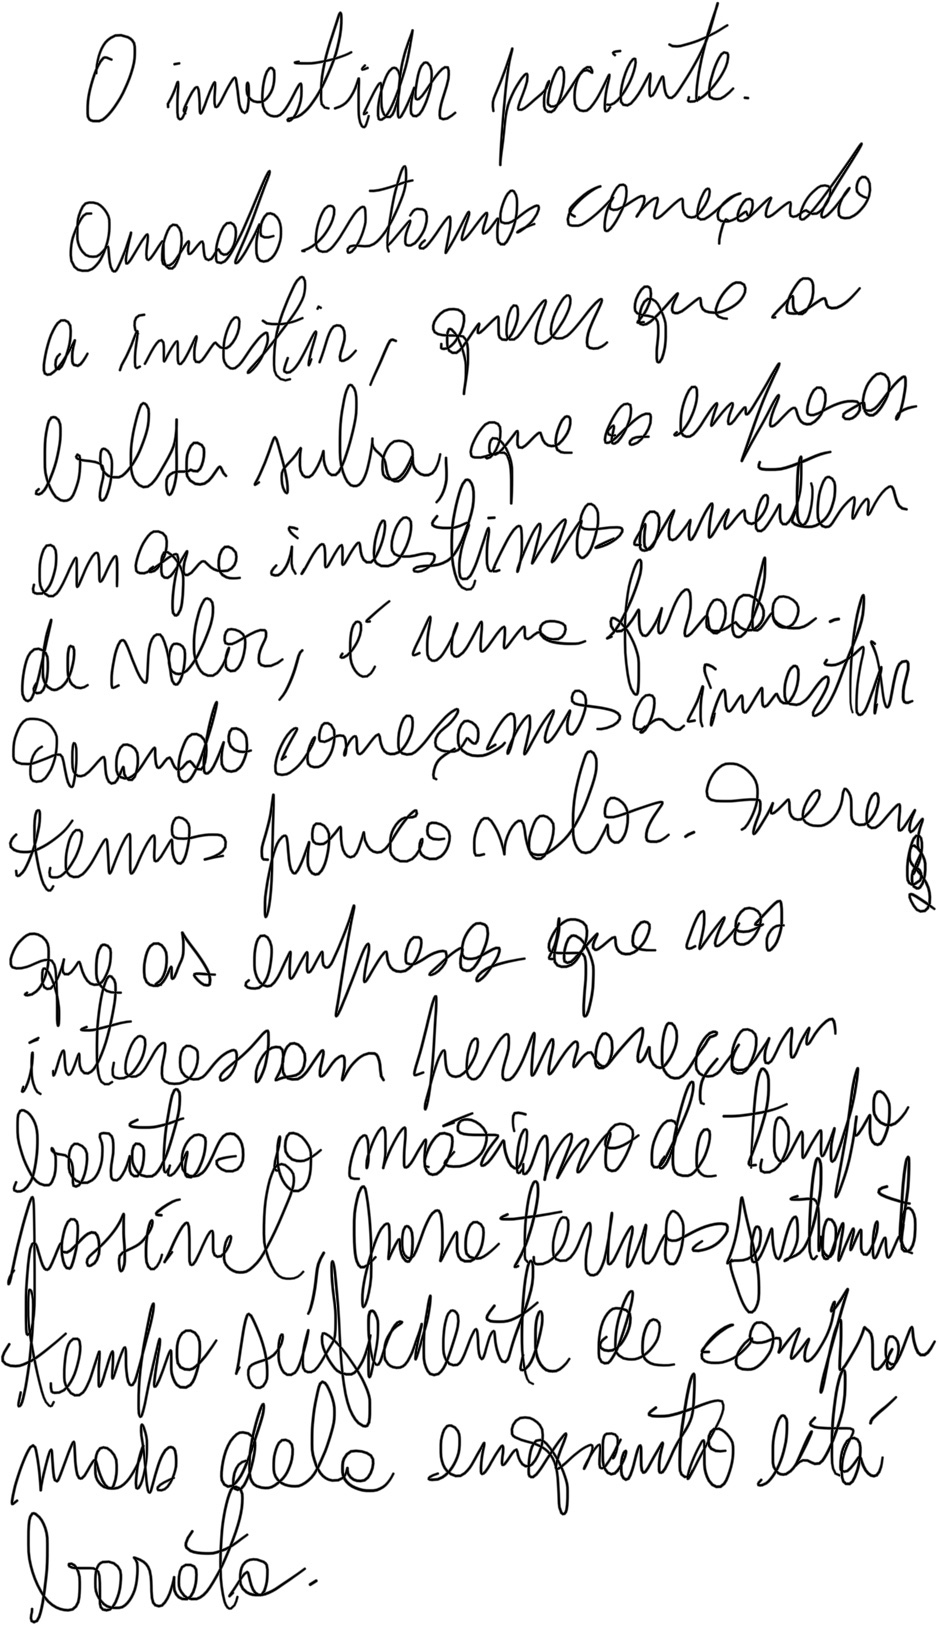 O investidor paciente.
Quando estamos começando
a investir, querer que a
bolsa suba, que as empresas
em que investimos aumentem
de valor, é uma furada.
Quando começamos a investir
temos pouco valor. Queremos
que as empresas que nos
interessam permaneçam
baratas o máximo de tempo
possível, para termos justamente
tempo suficiente de comprar
mais dela enquanto está
barata.